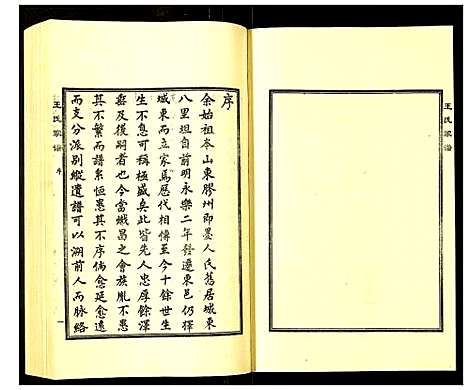 王氏家譜
序
余始祖本山東膠州即墨人氏舊居城東
八里坦自前明永樂二年發遷東邑仍擇
城東而立家焉歷代相傳至今十餘世生
生不息可稱極盛矣此皆先人忠厚餘澤
番及後嗣者也今當熾昌之會族胤不患
其不繁而譜系恒患其不序倘愈延愈遠
而支分派別縱遺譜可以溯前人而脉絡
王氏家譜 序 一